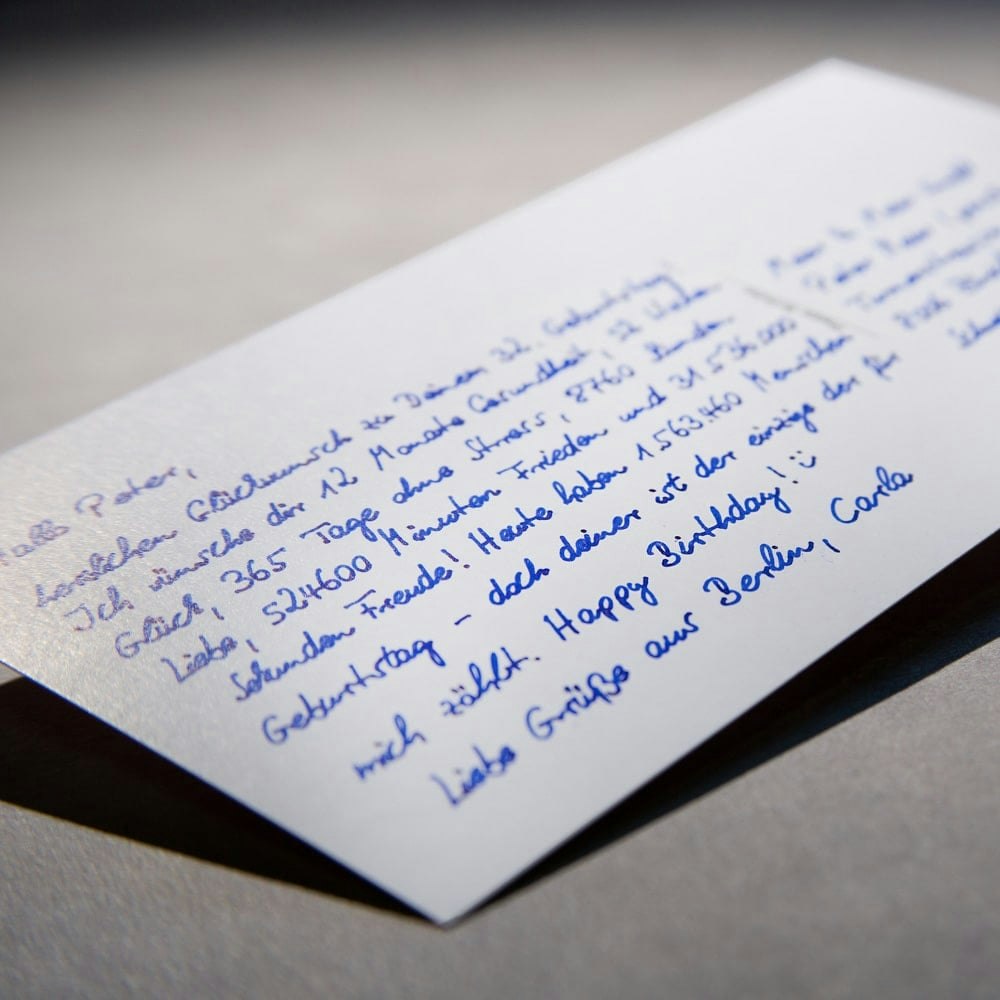 Hallo Peter,
herzlichen Glückwunsch zu Deinem 32. Geburtstag!
Ich wünsche dir 12 Monate Gesundheit, 52 Wochen
Glück, 365 Tage ohne Stress, 8760 Stunden
Liebe, 524600 Minuten Frieden und 31.536.000
Sekunden Freude! Heute haben 1.563.460 Menschen
Geburtstag – doch deiner ist der einzige der für
mich zählt. Happy Birthday! :)
Liebe Grüße aus Berlin, Carla
Peter